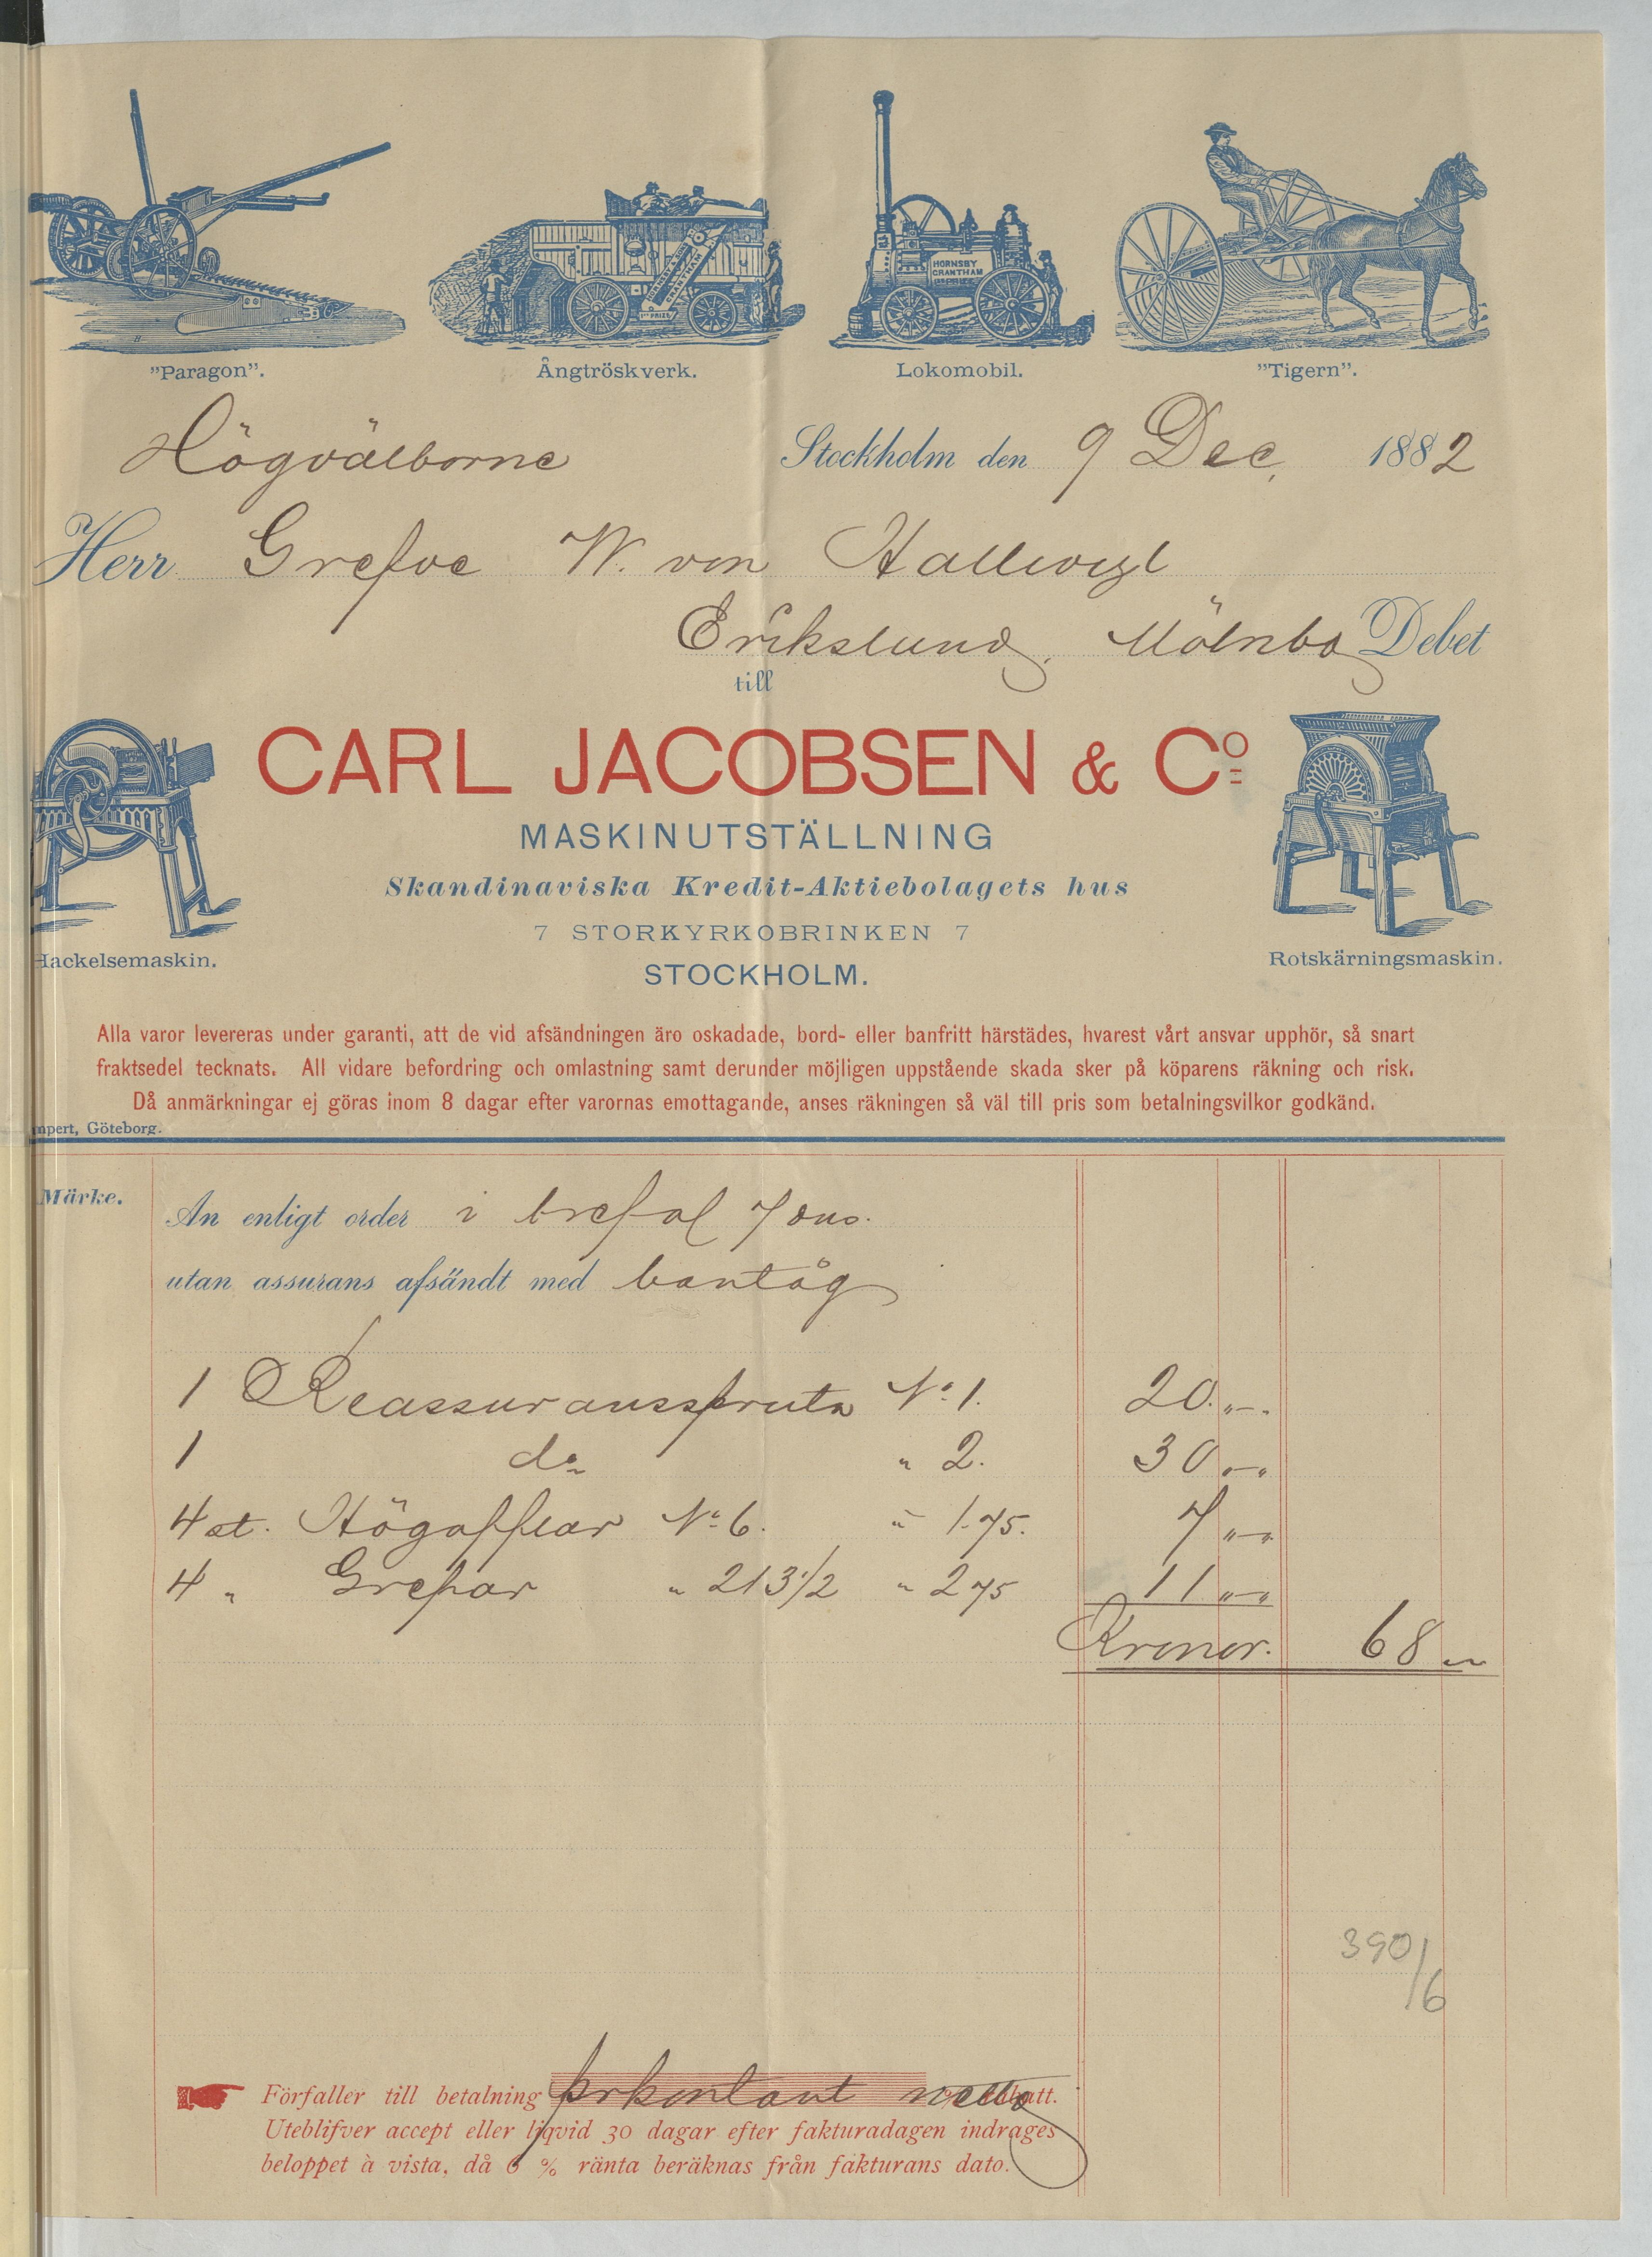 "Paragon". Ångtröskverk. Lokomobil. "Tigern".
HORNSBY
GRANTHAM
1ST PRIZE
Högvälborne Stockholm den 9 Dec, 1882
Herr Grefve W. von Hallwyl
Erikslund, Mölnbo Debet
till
CARL JACOBSEN & Co
MASKINUTSTÄLLNING
Skandinaviska Kredit-Aktiebolagets hus
7 STORKYRKOBRINKEN 7
STOCKHOLM.
Hackelsemaskin. Rotskärningsmaskin.
Alla varor levereras under garanti, att de vid afsändningen äro oskadade, bord- eller banfritt härstädes, hvarest vårt ansvar upphör, så snart
fraktsedel tecknats. All vidare befordring och omlastning samt derunder möjligen uppstående skada sker på köparens räkning och risk.
Då anmärkningar ej göras inom 8 dagar efter varornas emottagande, anses räkningen så väl till pris som betalningsvilkor godkänd.
mpert, Göteborg.
Märke.
An enligt order i bref af 7 dns.
utan assurans afsändt med bantåg
1 Reassuransspruta No 1. 20.„-.
1 do „ 2. 30„-„
4 st. Högafflar No 6. à 1.75. 7„-„
4 „ Grepar „ 213 1/2 „ 2 75 11„-„
Kronor. 68 „
390/6
Förfaller till betalning pr kontant netto rabatt.
Uteblifver accept eller liqvid 30 dagar efter fakturadagen indrages
beloppet à vista, då 6 % ränta beräknas från fakturans dato.